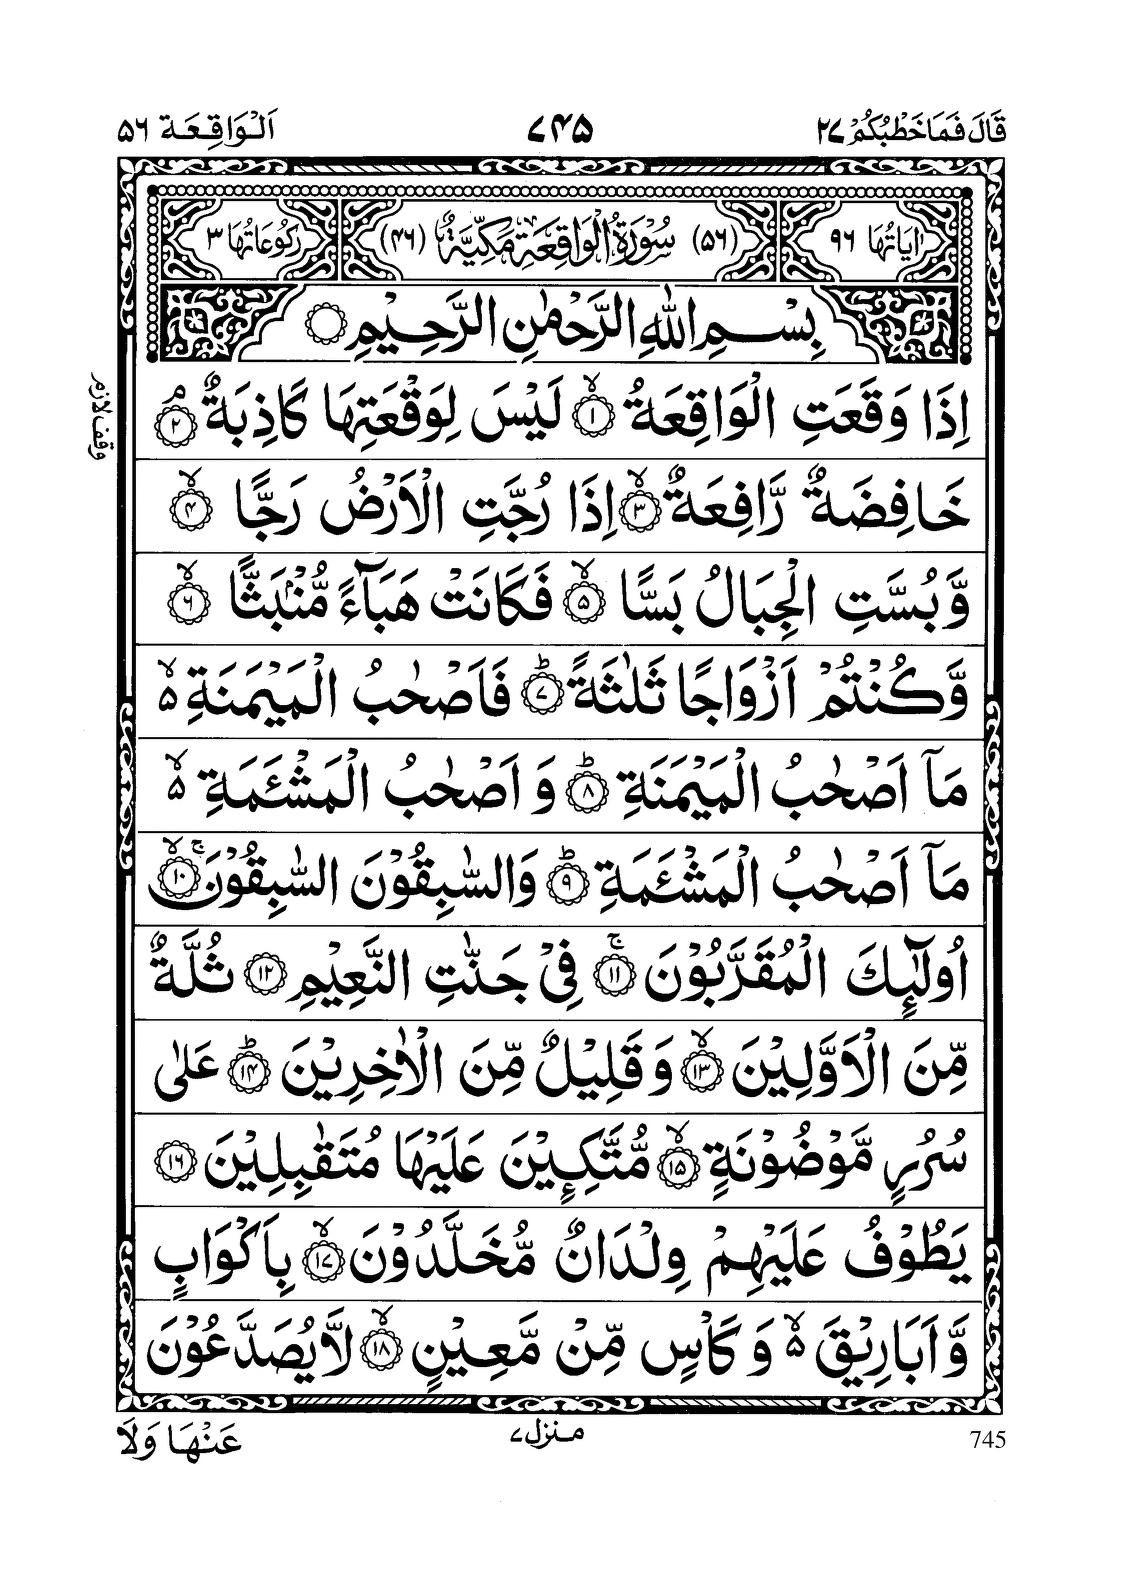 قَالَ فَمَا خَطْبُكُمْ ۲۷
۷۴۵
اَلْوَاقِعَة ۵۶
اٰيَاتُهَا ۹۶
(۵۶) سُوْرَةُ الْوَاقِعَةِ مَكِّيَّةٌ (۴۶)
رُكُوْعَاتُهَا ۳
بِسْمِ اللّٰهِ الرَّحْمٰنِ الرَّحِيْمِ ۝
اِذَا وَقَعَتِ الْوَاقِعَةُ ۙ‏﴿۱﴾ لَيْسَ لِوَقْعَتِهَا كَاذِبَةٌ ۘ‏﴿۲﴾
وقف لازم
خَافِضَةٌ رَّافِعَةٌ ۙ‏﴿۳﴾ اِذَا رُجَّتِ الْاَرْضُ رَجًّا ۙ‏﴿۴﴾
وَّبُسَّتِ الْجِبَالُ بَسًّا ۙ‏﴿۵﴾ فَكَانَتْ هَبَآءً مُّنْۢبَثًّا ۙ‏﴿۶﴾
وَّكُنْتُمْ اَزْوَاجًا ثَلٰثَةً ؕ‏﴿۷﴾ فَاَصْحٰبُ الْمَيْمَنَةِ ۙ۵
مَاۤ اَصْحٰبُ الْمَيْمَنَةِ ؕ‏﴿۸﴾ وَ اَصْحٰبُ الْمَشْـَٔمَةِ ۙ۵
مَاۤ اَصْحٰبُ الْمَشْـَٔمَةِ ؕ‏﴿۹﴾ وَالسّٰبِقُوْنَ السّٰبِقُوْنَ ۚۙ‏﴿۱۰﴾
اُولٰٓئِكَ الْمُقَرَّبُوْنَ ۚ‏﴿۱۱﴾ فِيْ جَنّٰتِ النَّعِيْمِ ﴿۱۲﴾ ثُلَّةٌ
مِّنَ الْاَوَّلِيْنَ ۙ‏﴿۱۳﴾ وَ قَلِيْلٌ مِّنَ الْاٰخِرِيْنَ ؕ‏﴿۱۴﴾ عَلٰى
سُرُرٍ مَّوْضُوْنَةٍ ۙ‏﴿۱۵﴾ مُّتَّكِـِٕيْنَ عَلَيْهَا مُتَقٰبِلِيْنَ ﴿۱۶﴾
يَطُوْفُ عَلَيْهِمْ وِلْدَانٌ مُّخَلَّدُوْنَ ۙ‏﴿۱۷﴾ بِاَكْوَابٍ
وَّ اَبَارِيْقَ ۙ۵ وَ كَاْسٍ مِّنْ مَّعِيْنٍ ۙ‏﴿۱۸﴾ لَّا يُصَدَّعُوْنَ
عَنْهَا وَلَا
منزل ۷
745